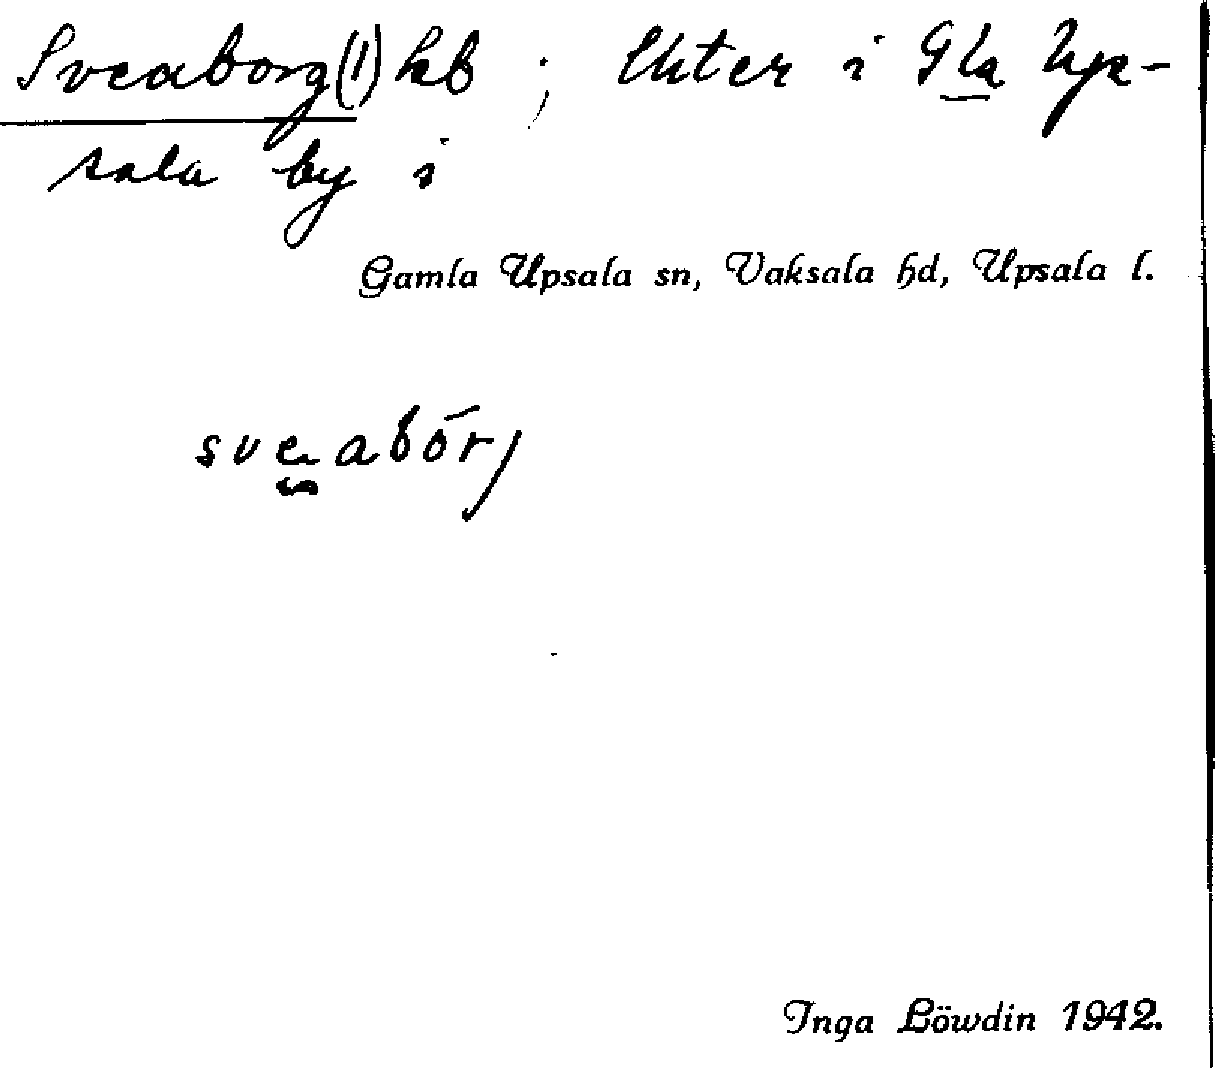 Sveaborg(1) hb ; täkter i Gla Upp-
sala by i
Gamla Upsala sn, Vaksala hd, Upsala l.
sveabór,
Inga Löwdin 1942.